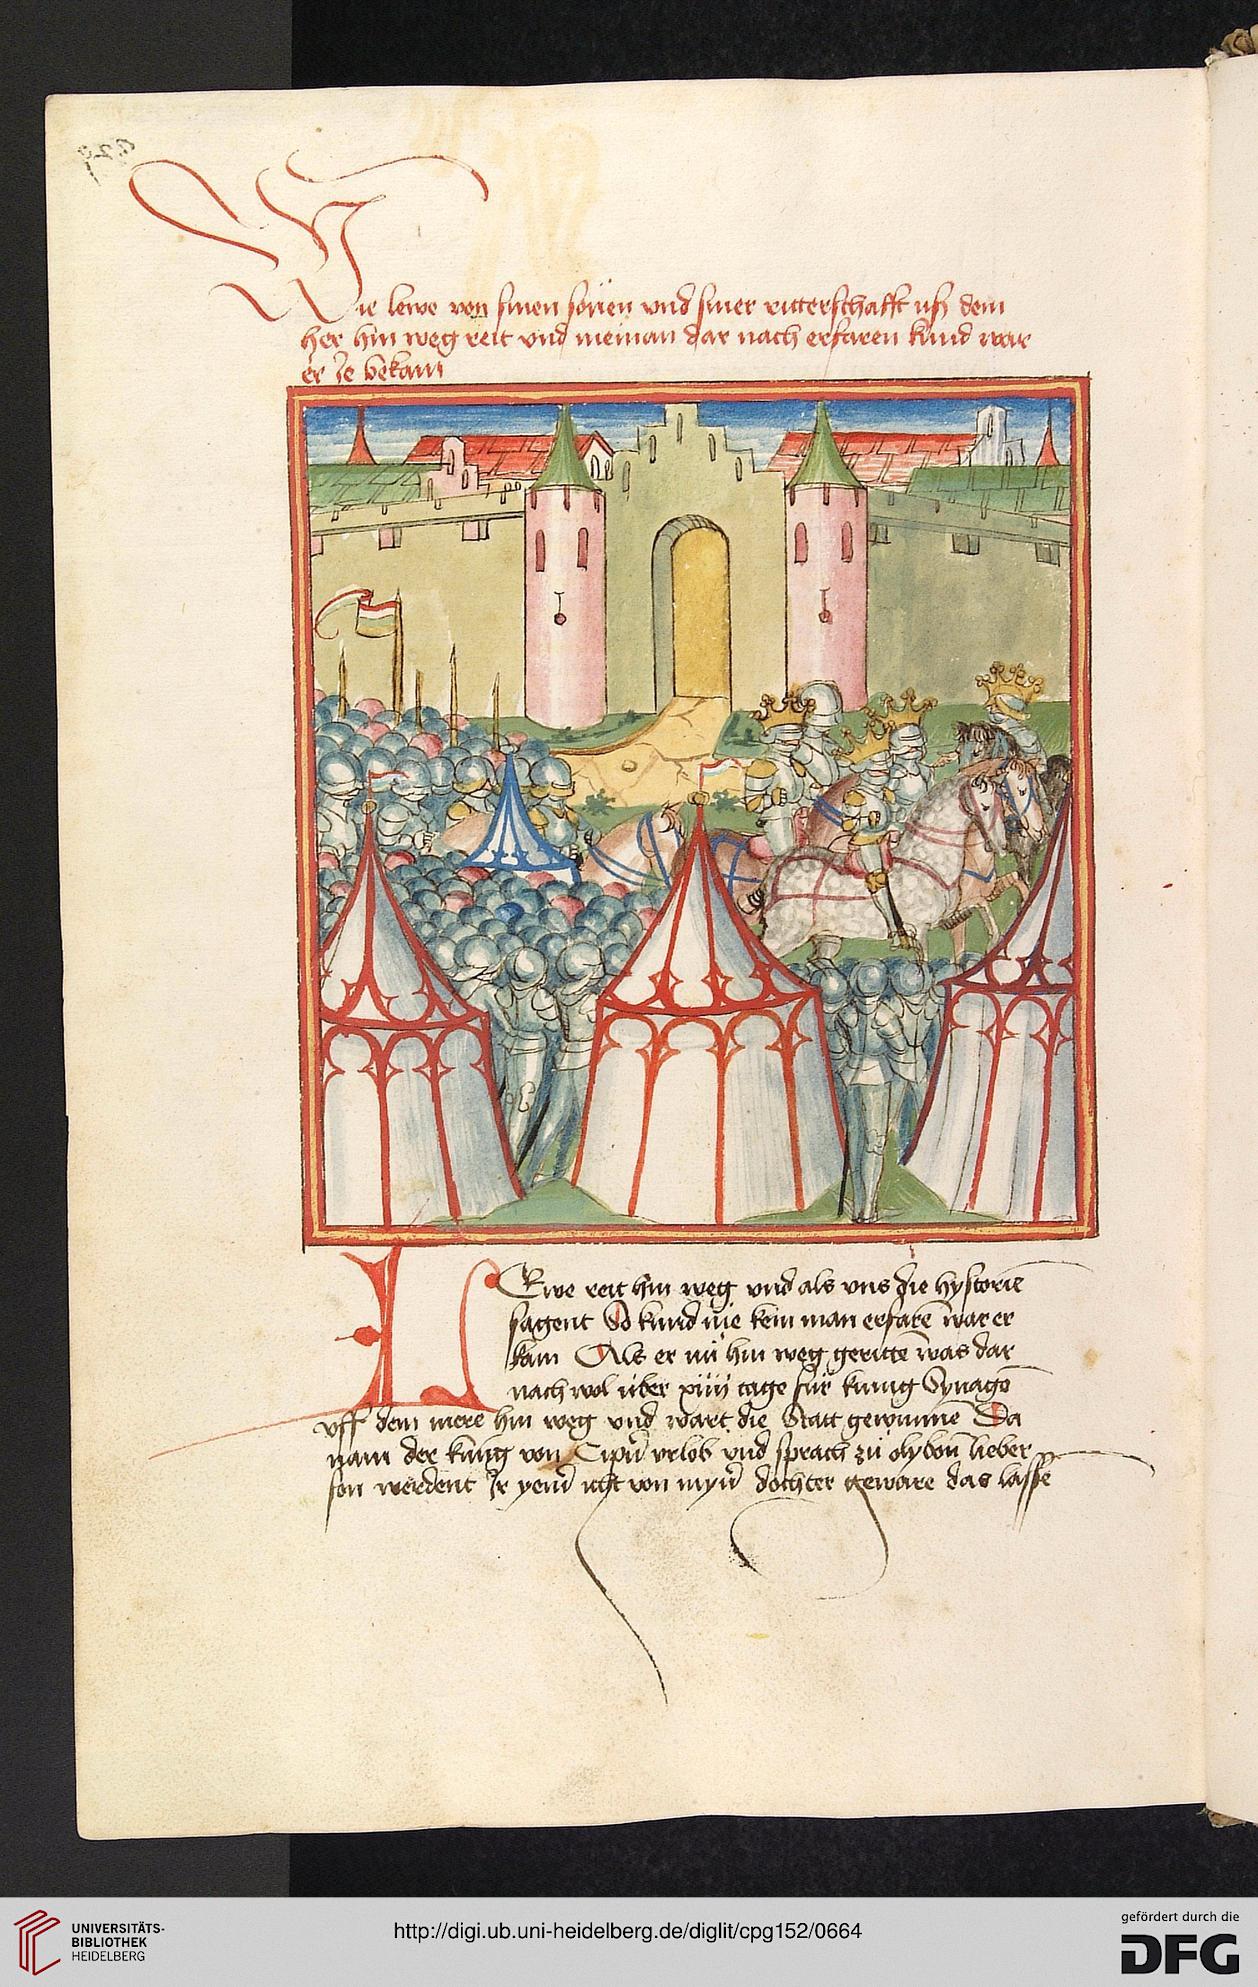 Wie lewe von sinen sönen vnd siner ritterschafft uß dem
her hin weg reit vnd nieman dar nach erfaren kund war
er Je bekam
LEwe reit hin weg vnd als vns die hystorie
sagent So kund nie kein man erfarē war er
kam Als er nů hin weg gerittē was dar
nach wol über xiiij tage für kunig Synago
vff dem mere hin weg vnd wart die Statt gewunnē Da
nam der kunig von vrlob vnd sprach zů lieber
son werdent Jr von dochter geware das lassē
UNIVERSITÄTS-
BIBLIOTHEK
HEIDELBERG
http://digi.ub.uni-heidelberg.de/diglit/cpg152/0664
gefördert durch die
DFG